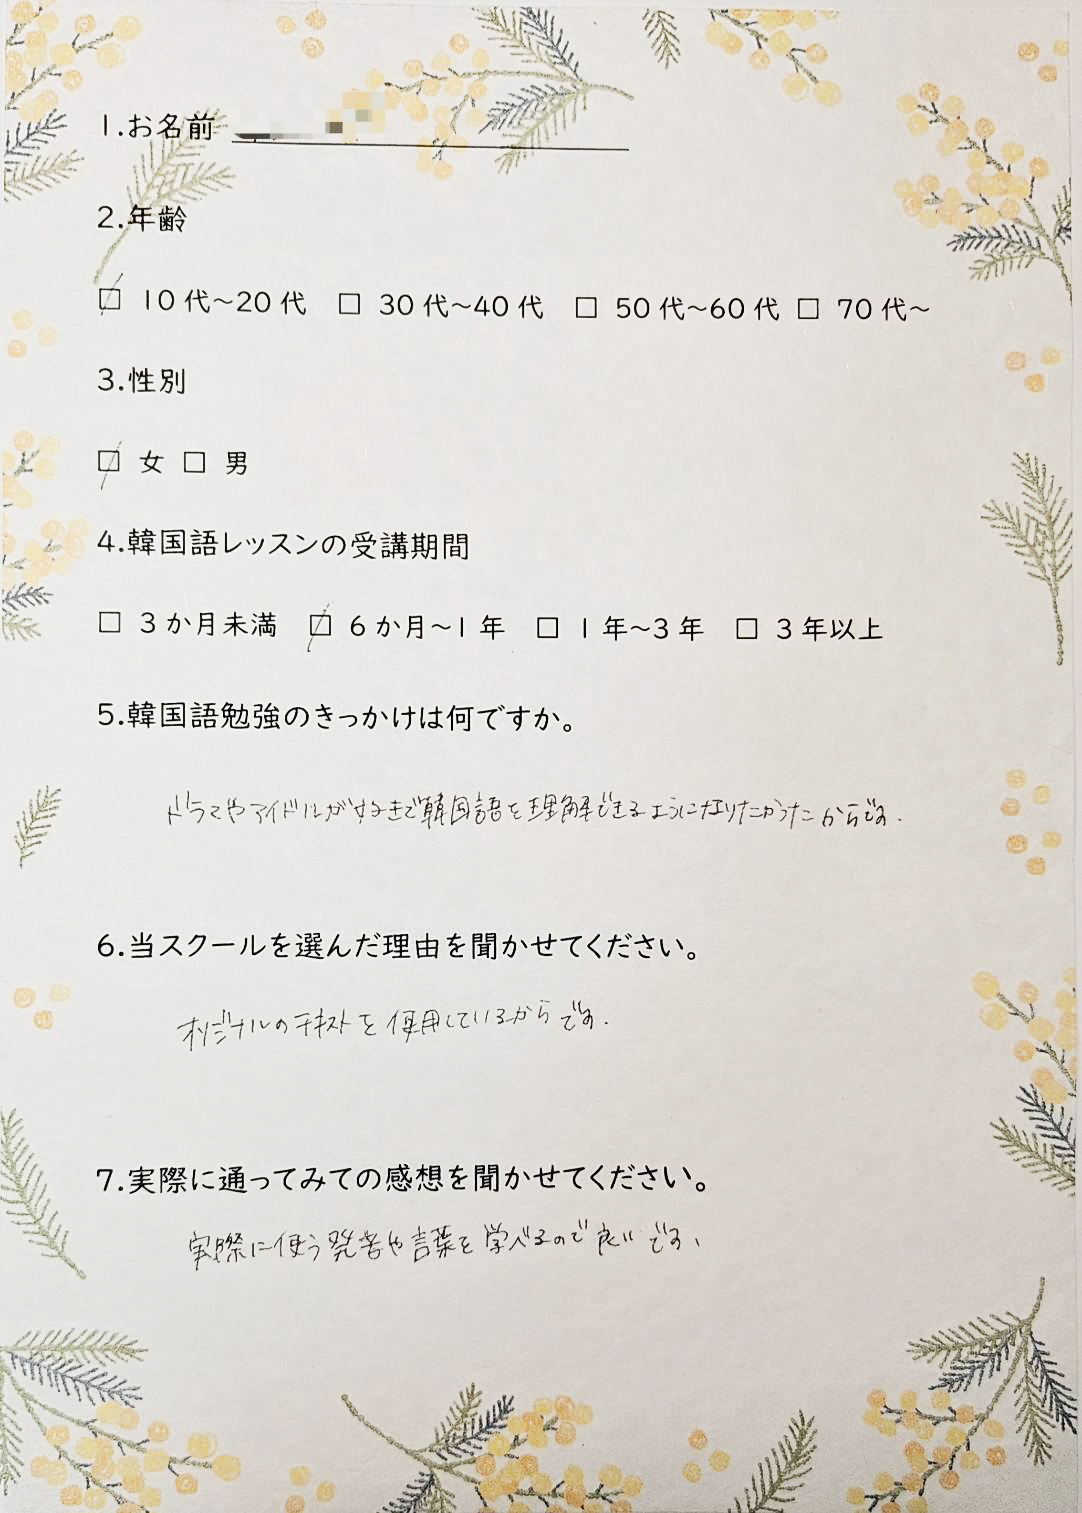 1.お名前
2.年齢
□ 10代〜20代 □ 30代〜40代 □ 50代〜60代 □ 70代〜
3.性別
□ 女 □ 男
4.韓国語レッスンの受講期間
□ 3か月未満 □ 6か月〜1年 □ 1年〜3年 □ 3年以上
5.韓国語勉強のきっかけは何ですか。
ドラマやアイドルがすきで韓国語を理解できるようになりたかったからです.
6.当スクールを選んだ理由を聞かせてください。
オリジナルのテキストを使用しているからです.
7.実際に通ってみての感想を聞かせてください。
実際に使う発音や言葉を学べるので良いです、